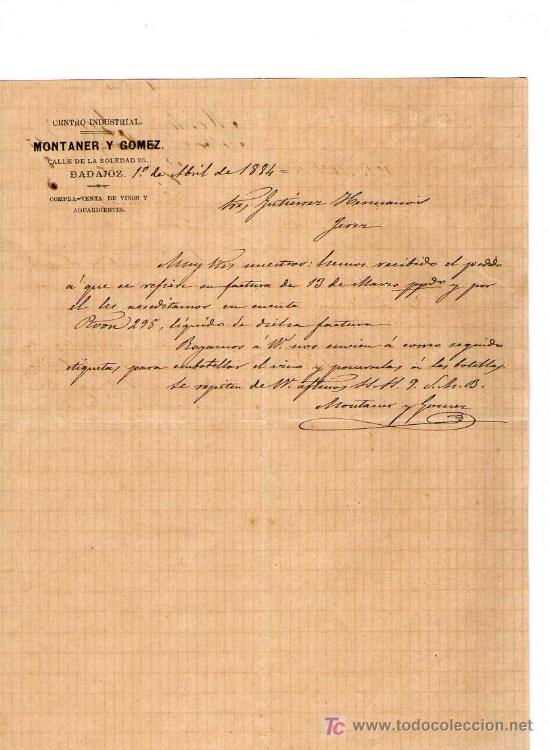 CENTRO INDUSTRIAL.
MONTANER Y GOMEZ.
CALLE DE LA SOLEDAD 25.
BADAJOZ. 1º de Abril de 1894=
COMPRA-VENTA DE VINOS Y
AGUARDIENTES.
Sres Gutiérrez Hermanos
Jerez
Muy Sres nuestros: hemos recibido el pedido
á que se refiere su factura de 13 de Marzo ppdo y por
el les acreditamos en cuenta
Rvon 298, líquido de dicha factura
Rogamos á Vs. nos envien á correo seguido
etiquetas para embotellar el vino y ponerselas á las botellas.
Se repiten de Vs. afftmos S.S. Q. S. M. B.
Montaner y Gomez
TC www.todocoleccion.net